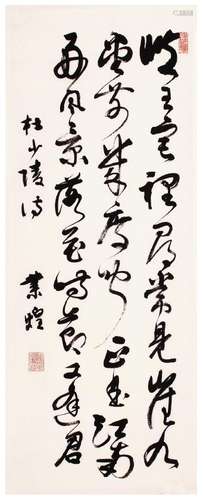 岐王宅裡尋常見崔九
堂前幾度聞正是江南
好風景落花時節又逢君
杜少陵詩 業煌